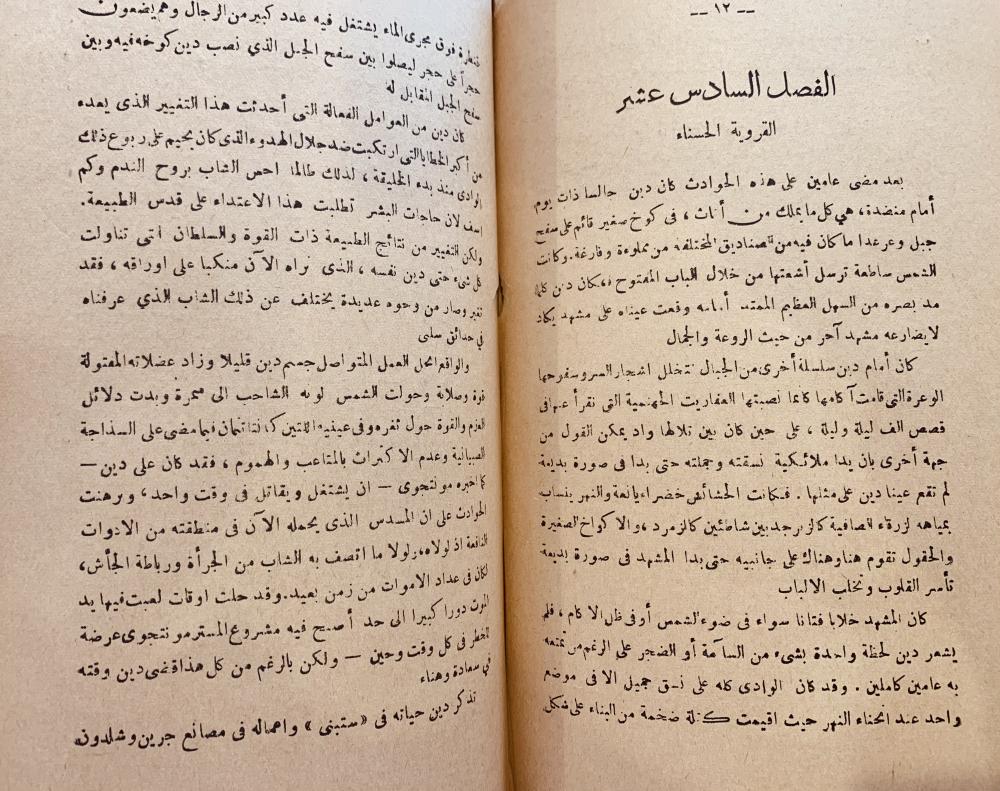 — ١٢ —
الفصل السادس عشر
القروية الحسناء
بعد مضى عامين على هذه الحوادث كان دين جالسا ذات يوم
أمام منضدة، هي كل ما يملك من أثاث، فى كوخ صغير قائم على سفح
جبل وعر عدا ما كان فيه من الصناديق المختلفة من مملوءة وفارغة. وكانت
الشمس ساطعة ترسل أشعتها من خلال الباب المفتوح، فكان دين كلما
مد بصره من السهل العظيم الممتد أمامه وقعت عيناه على مشهد يكاد
لا يضارعه مشهد آخر من حيث الروعة والجمال
كان أمام دين سلسلة أخرى من الجبال تتخلل اشجار السرو سفوحها
الوعرة التى قامت آكامها كانما نصبتها العفاريت الجهنمية التى نقرأ عنها فى
قصص الف ليلة وليلة، على حين كان بين تلالها واد يمكن القول من
جهة أخرى بان يدا ملائكية نسقته وجملته حتى بدا فى صورة بديعة
لم تقع عينا دين على مثلها. فكانت الحشائش خضراء يانعة والنهر ينساب
بمياهه الزرقاء الصافية كالزبرجد بين شاطئين كالزمرد، والاكواخ الصغيرة
والحقول تقوم هنا وهناك على جانبيه حتى بدا المشهد فى صورة بديعة
تأسر القلوب وتخلب الالباب
كان المشهد خلابا فتانا سواء فى ضوء الشمس أو فى ظل الاكام، فلم
يشعر دين لحظة واحدة بشىء من السآمة أو الضجر على الرغم من تمتعه
به عامين كاملين. وقد كان الوادى كله على نسق جميل الا فى موضع
واحد عند انحناء النهر حيث اقيمت كتلة ضخمة من البناء على شكل
قنطرة فوق مجرى الماء يشتغل فيه عدد كبير من الرجال وهم يضعون
حجراً على حجر ليصلوا بين سفح الجبل الذي نصب دين كوخه فيه وبين
سفح الجبل المقابل له
كان دين من العوامل الفعالة التى أحدثت هذا التغيير الذى يعده
من أكبر الخطايا التى ارتكبت ضد جلال الهدوء الذى كان يخيم على ربوع ذلك
الوادى منذ بدء الخليقة، لذلك طالما احس الشاب بروح الندم وكم
اسف لان حاجات البشر تطلبت هذا الاعتداء على قدس الطبيعة.
ولكن التغيير من نتائج الطبيعة ذات القوة والسلطان التى تناولت
كل شىء حتى دين نفسه، الذى نراه الآن منكبا على اوراقه، فقد
تغير وصار من وجوه عديدة يختلف عن ذلك الشاب الذي عرفناه
في حدائق سلبى
والواقع انحل العمل المتواصل جسم دين قليلا وزاد عضلاته المفتولة
قوة وصلابة وحولت الشمس لونه الشاحب الى سمرة وبدت دلائل
العزم والقوة حول ثغره وفى عينيه اللتين كانتا تنمان فيما مضى على السذاجة
الصبيانية وعدم الاكتراث بالمتاعب والهموم، فقد كان على دين —
كما اخبره مونتجوى — ان يشتغل ويقاتل فى وقت واحد، وبرهنت
الحوادث على ان المسدس الذى يحمله الآن فى منطقته من الادوات
النافعة اذ لولاه، ولولا ما اتصف به الشاب من الجرأة ورباطة الجأش،
لكان فى عداد الاموات من زمن بعيد. وقد حلت اوقات لعبت فيها يد
الموت دورا كبيرا الى حد أصبح فيه مشروع المستر مونتجوى عرضة
للخطر فى كل وقت وحين — ولكن بالرغم من كل هذا قضى دين وقته
في سعادة وهناء
تذكر دين حياته فى «ستبنى» واعماله فى مصانع جرين وشلدون